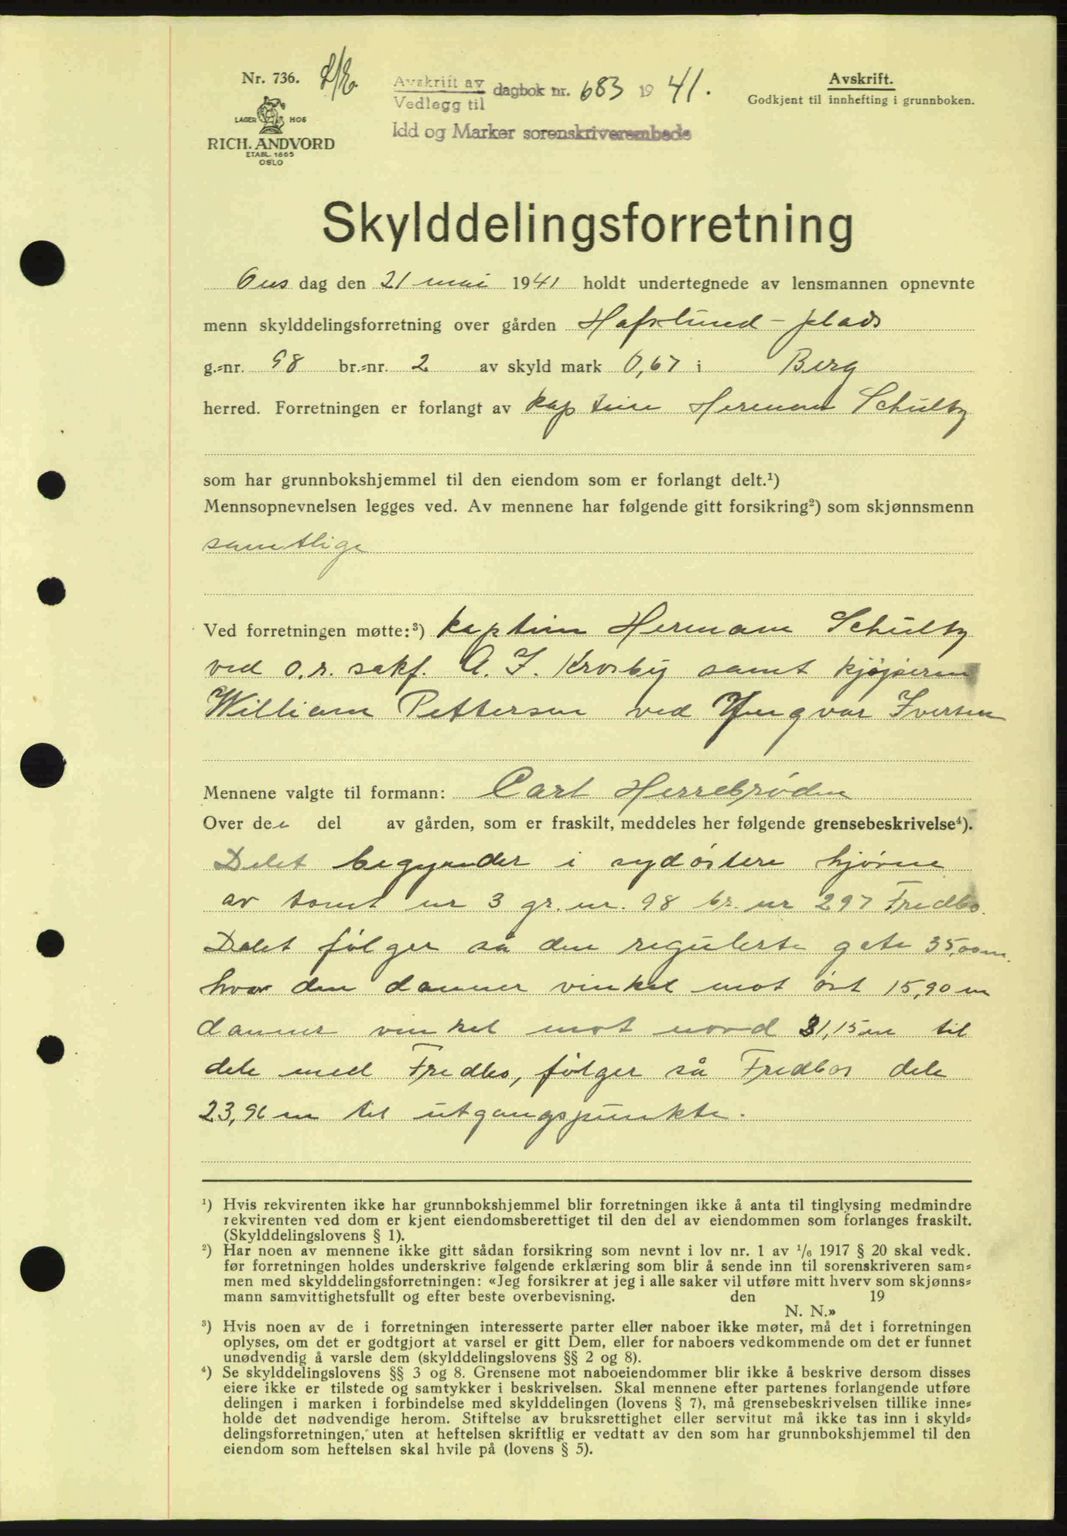 Nr. 736.
LAGER HOS
RICH. ANDVORD
ETABL. 1865
OSLO
Avskrift av
Vedlegg til dagbok nr. 683 1941.
Idd og Marker sorenskriverembede
Avskrift.
Godkjent til innhefting i grunnboken.
Skylddelingsforretning
Ons dag den 21 mai 1941 holdt undertegnede av lensmannen opnevnte
menn skylddelingsforretning over gården Hafslund-plads
g.=nr. 98 br.=nr. 2 av skyld mark 0,67 i Berg
herred. Forretningen er forlangt av kaptein Herman Schulty
som har grunnbokshjemmel til den eiendom som er forlangt delt.¹)
Mennsopnevnelsen legges ved. Av mennene har følgende gitt forsikring²) som skjønnsmenn
samtlige
Ved forretningen møtte:³) kaptein Hermann Schulty
ved o.r. sakf. A. F. Krosby samt kjøperen
William Pettersen ved Yngvar Iversen
Mennene valgte til formann: Carl Herrebrøden
Over den del av gården, som er fraskilt, meddeles her følgende grensebeskrivelse⁴).
Delet begynder i sydöstere hjörne
av tomt nr 3 gr. nr. 98 br. nr 297 Fredbo.
Delet følger så den regulerte gate 35,00m.
hvor den danner vinkel mot öst 15,90 m
danner vinkel mot nord 31,15 m til
dele med Fredbo, følger så Fredbos dele
23,96 m til utgangspunkte.
¹) Hvis rekvirenten ikke har grunnbokshjemmel blir forretningen ikke å anta til tinglysing medmindre
rekvirenten ved dom er kjent eiendomsberettiget til den del av eiendommen som forlanges fraskilt.
(Skylddelingslovens § 1).
²) Har noen av mennene ikke gitt sådan forsikring som nevnt i lov nr. 1 av ¹/₆ 1917 § 20 skal vedk.
før forretningen holdes underskrive følgende erklæring som blir å sende inn til sorenskriveren sam=
men med skylddelingsforretningen: «Jeg forsikrer at jeg i alle saker vil utføre mitt hverv som skjønns=
mann samvittighetsfullt og efter beste overbevisning. den 19
N. N.»
³) Hvis noen av de i forretningen interesserte parter eller naboer ikke møter, må det i forretningen
oplyses, om det er godtgjort at varsel er gitt Dem, eller for naboers vedkommende om det er funnet
unødvendig å varsle dem (skylddelingslovens §§ 2 og 8).
⁴) Se skylddelingslovens §§ 3 og 8. Grensene mot naboeiendommer blir ikke å beskrive dersom disses
eiere ikke er tilstede og samtykker i beskrivelsen. Skal mennene efter partenes forlangende utføre
delingen i marken i forbindelse med skylddelingen (lovens § 7), må grensebeskrivelsen tillike inne=
holde det nødvendige herom. Stiftelse av bruksrettighet eller servitut må ikke tas inn i skyld=
delingsforretningen, uten at heftelsen skriftlig er vedtatt av den som har grunnbokshjemmel til den
eiendom som heftelsen skal hvile på (lovens § 5).